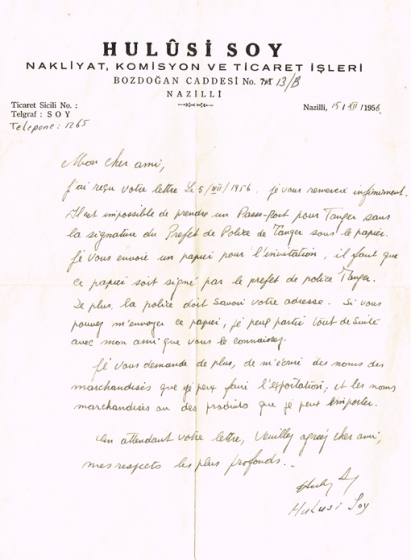 HULÛSİ SOY
NAKLİYAT, KOMİSYON VE TİCARET İŞLERİ
BOZDOĞAN CADDESİ No. 13/B
NAZİLLİ
Ticaret Sicili No. :
Telgraf : SOY
Telepone : 1265
Nazilli, 15/XII/1956
Mon cher ami,
J'ai reçu votre lettre Le 5/XII/1956. je vous remercie infiniment.
Il est impossible de prendre un Passe-Port pour Tanger sans
la signature du Prefet de Police de Tanger sous le papier.
Je vous envoie un papier pour l'invitation, il faut que
ce papier soit signé par le prefet de police Tanger.
De plus, la police doit savoir votre adresse. Si vous
pouvez m'envoyer ce papier, je peux partir tout de suite
avec mon ami que vous le connaissez.
Je vous demande de plus, de m'écrire des noms des
marchandises que je peux faire l'exportation, et les noms
marchandises ou des produits que je peux importer.
En attendant votre lettre, Veuillez agréez cher ami,
mes respects les plus profonds.
Hulusi Soy